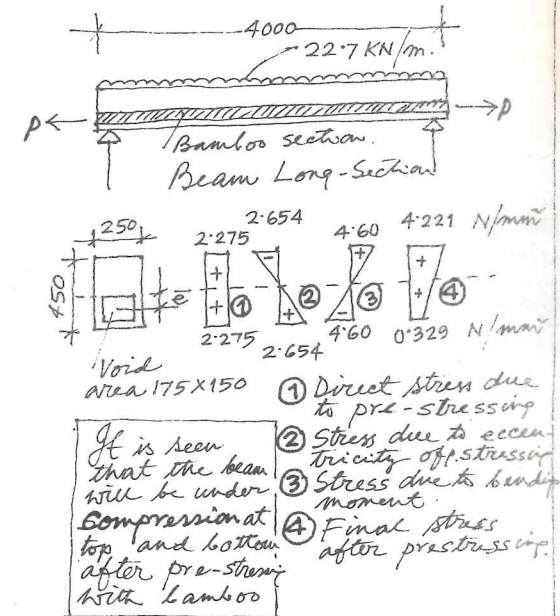 4000
22.7 KN/m.
P
P
Bamboo section.
Beam Long-Section
250
450
e
Void
area 175X150
2.275
2.654
4.60
4.221 N/mm²
+
+
1
-
+
2
+
-
3
+
+
4
2.275
2.654
4.60
0.329 N/mm²
1 Direct stress due
to pre-stressing
2 Stress due to eccen-
tricity of p.stressing
3 Stress due to bending
moment.
4 Final stress
after prestressing.
It is seen
that the beam
will be under
Compression at
top and bottom
after pre-stressing
with bamboo